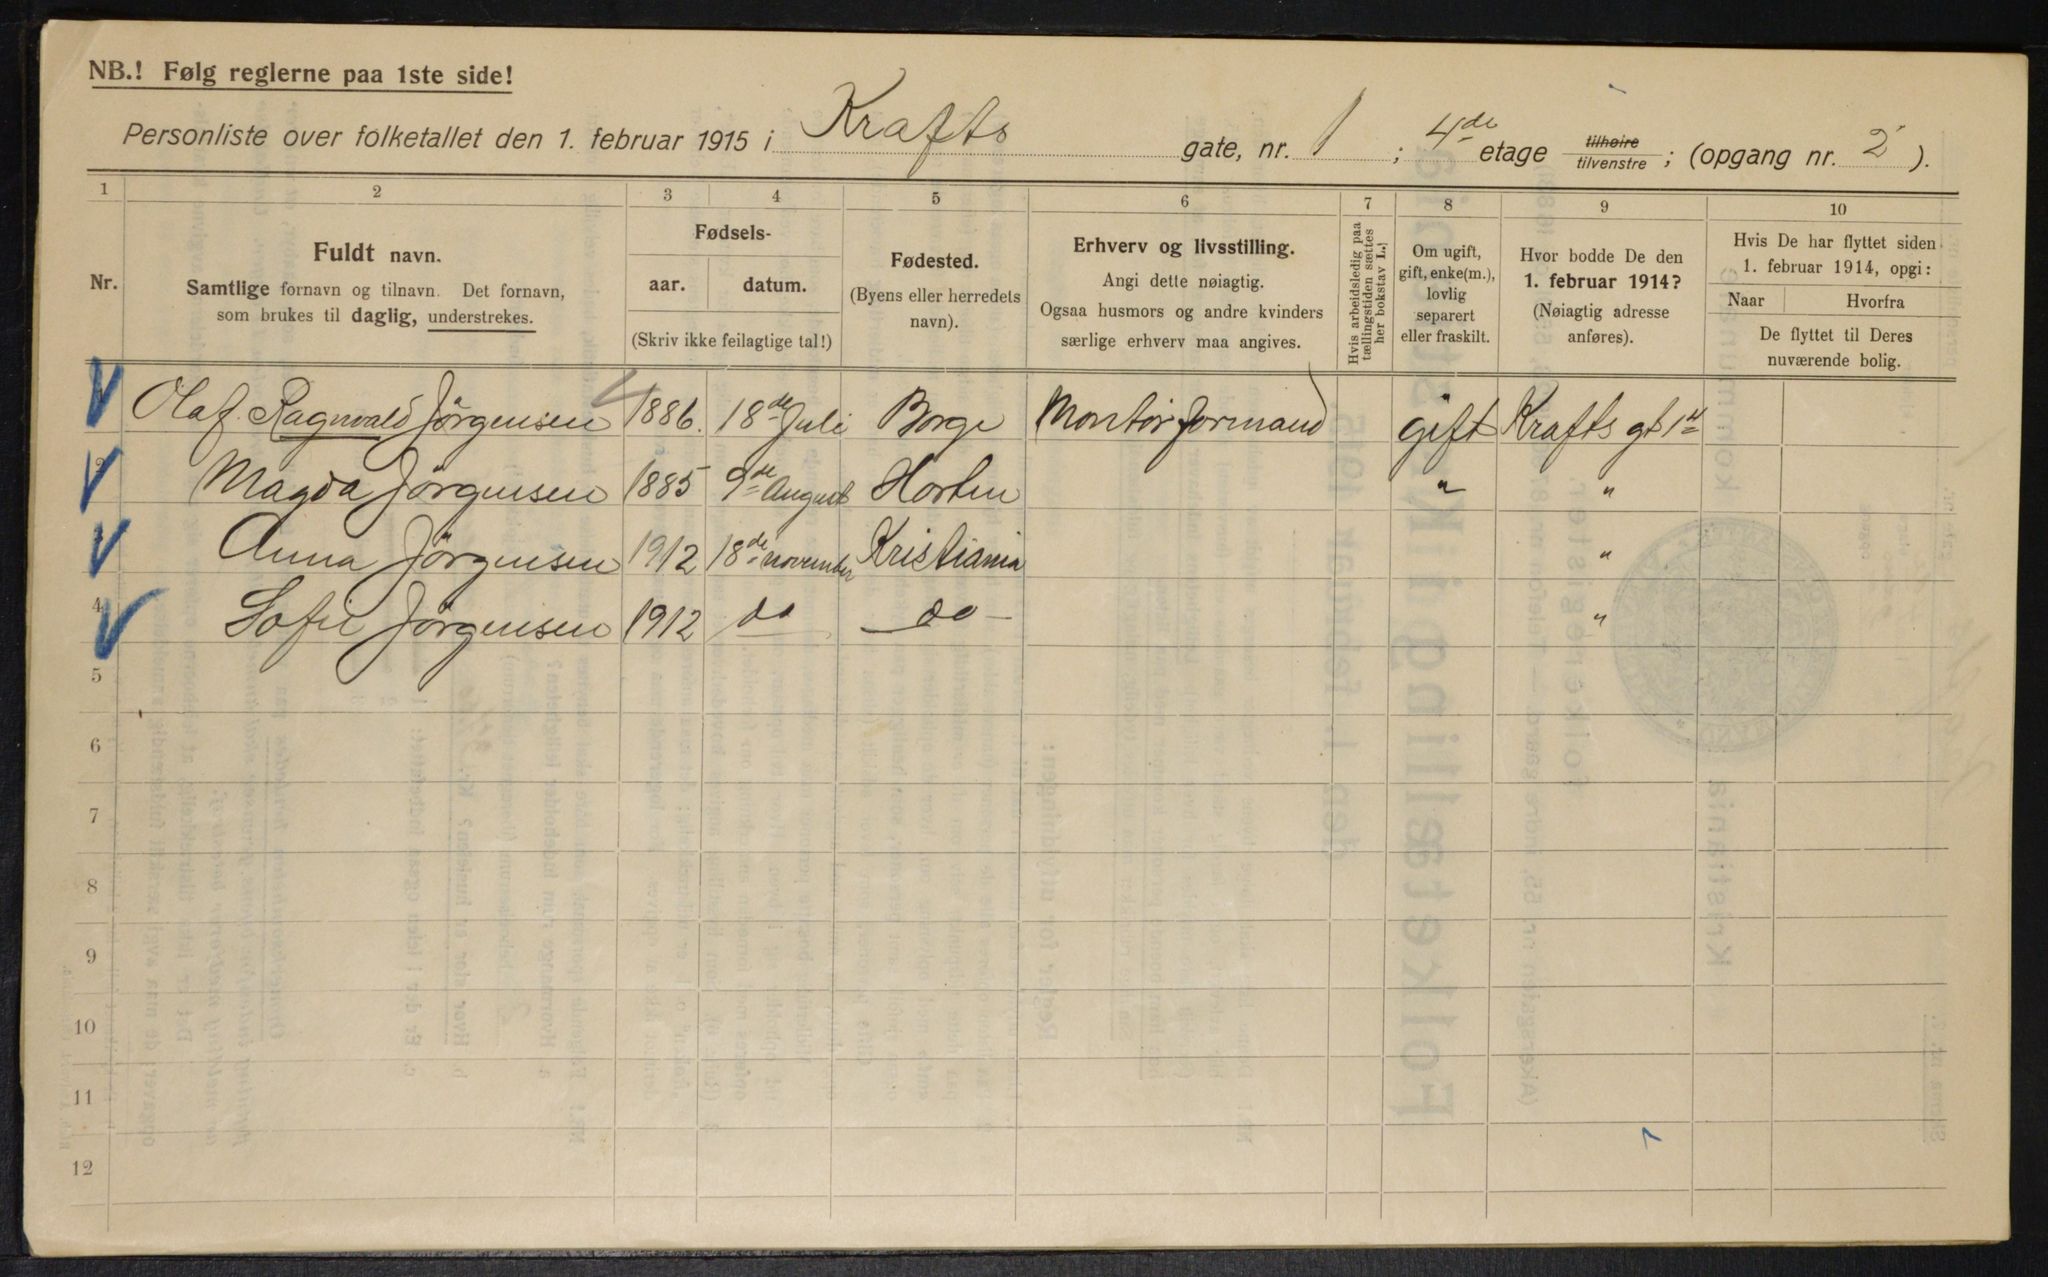 NB.! Følg reglerne paa 1ste side!
Personliste over folketallet den 1. februar 1915 i Krafts gate, nr. 1 ; 4de etage tilhøire tilvenstre ; (opgang nr. 2 ).
1 2 3 4 5 6 7 8 9 10
Nr.
Fuldt navn.
Samtlige fornavn og tilnavn. Det fornavn,
som brukes til daglig, understrekes.
Fødsels-
aar. datum.
(Skriv ikke feilagtige tal!)
Fødested.
(Byens eller herredets
navn).
Erhverv og livsstilling.
Angi dette nøiagtig.
Ogsaa husmors og andre kvinders
særlige erhverv maa angives.
Hvis arbeidsledig paa
tællingstiden sættes
her bokstav L.!
Om ugift,
gift, enke(m.),
lovlig
separert
eller fraskilt.
Hvor bodde De den
1. februar 1914?
(Nøiagtig adresse
anføres).
Hvis De har flyttet siden
1. februar 1914, opgi:
Naar Hvorfra
De flyttet til Deres
nuværende bolig.
Olaf Ragnvald Jørgensen 1886. 18de Juli Borge Montør formand gift Krafts gt 1
2 Magda Jörgensen 1885 9de August Horten " "
Anna Jörgensen 1912 18de november Kristiania "
4 Sofie Jörgensen 1912 do do "
5
6
7
8
9
10
11
12